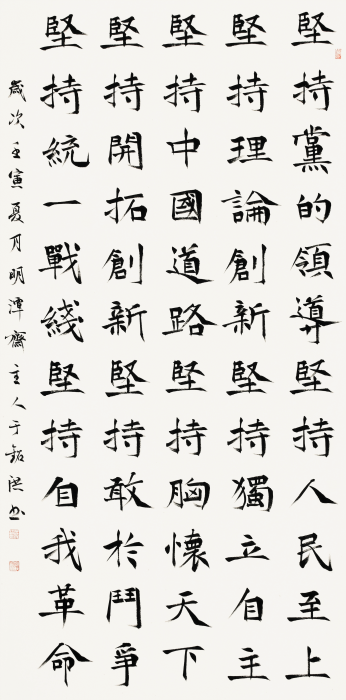 堅持黨的領導堅持人民至上
堅持理論創新堅持獨立自主
堅持中國道路堅持胸懷天下
堅持開拓創新堅持敢於鬥爭
堅持統一戰綫堅持自我革命
歲次壬寅夏月明潭齋主人于韜洪书